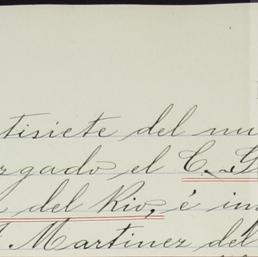 tisiete del nu
rgado el C. G
del Rio, é in
Martinez del